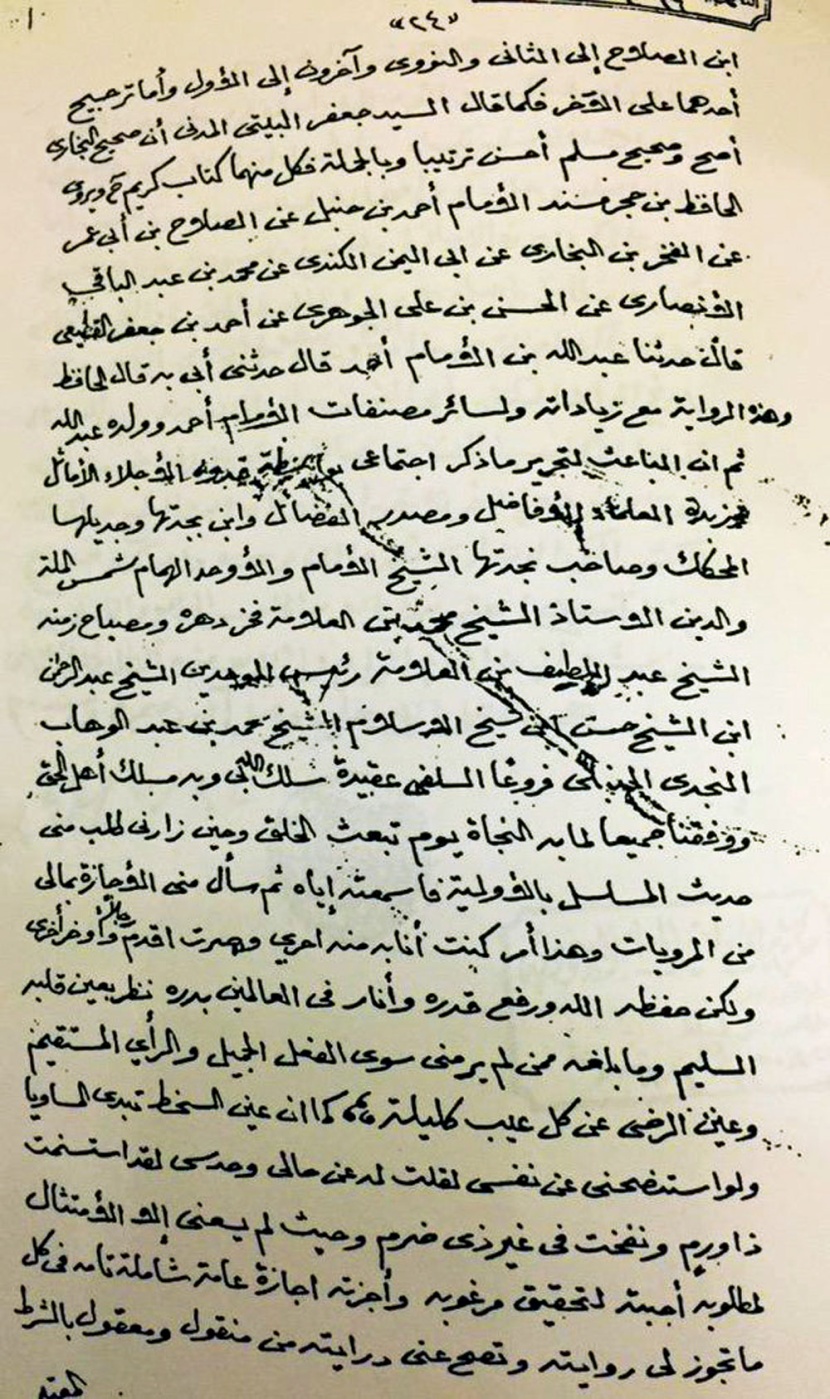 «٢٤»
ابن الصلاح إلى الثاني والنووي وآخرون إلى الأول وأما ترجيح
أحدهما على الآخر فكما قال السيد جعفر البيتي المدني أن صحيح البخاري
أصح وصحيح مسلم أحسن ترتيبا وبالجملة فكل منهما كتاب كريم ح ويروي
الحافظ بن حجر مسند الأمام أحمد بن حنبل عن الصلاح بن أبي عمر
عن الفخر بن البخاري عن ابي اليمن الكندي عن محمد بن عبد الباقي
الأنصاري عن الحسن بن علي الجوهري عن أحمد بن جعفر القطيعي
قال حدثنا عبد الله بن الأمام أحمد قال حدثني أبي به قال الحافظ
وهذه الرواية مع زياداته ولسائر مصنفات الأمام أحمد وولده عبد الله
ثم ان الباعث لتحرير ما ذكر اجتماعي قدوة الأجلاء الأماثل
وزبدة العلماء الأفاضل ومصدر الفضائل وابن بجدتها وجديلها
المحكك وصاحب نجدتها الشيخ الأمام والأوحد الهمام شمس الملة
والدين الاستاذ الشيخ محمد بن العلامة فخر دهره ومصباح زمنه
الشيخ عبد اللطيف بن العلامة رئيس الموحدين الشيخ عبد الرحمن
ابن الشيخ حسن ابن شيخ الاسلام الشيخ محمد بن عبد الوهاب
النجدي الحنبلي فروعًا السلفي عقيدة سلك الله بي وبه مسلك أهل الحق
ووفقنا جميعا لما به النجاة يوم تبعث الخلق وحين زارني طلب مني
حديث المسلسل بالأولية فاسمعته إياه ثم سأل مني الأجازة بمالي
من المرويات وهذا أمر كنت أنا به منه احري وصرت اقدم رجلا وأوخر أخرى
ولكن حفظه الله ورفع قدره وأنار في العالمين بدره نظر بعين قلبه
السليم وما بلغه ممن لم ير مني سوى الفعل الجميل والرأي المستقيم
وعين الرضى عن كل عيب كليلة كما ان عين السخط تبدي المساويا
ولو استنصحني عن نفسي لقلت له عن حالي وحدسي لقد استسمنت
ذا ورم ونفخت في غير ذي ضرم وحيث لم يسعني إلا الأمتثال
لمطلوبه أجبته لتحقيق مرغوبه وأجزته اجازة عامة شاملة تامه في كل
ما تجوز لي روايته وتصح عني درايته من منقول ومعقول بالشرط